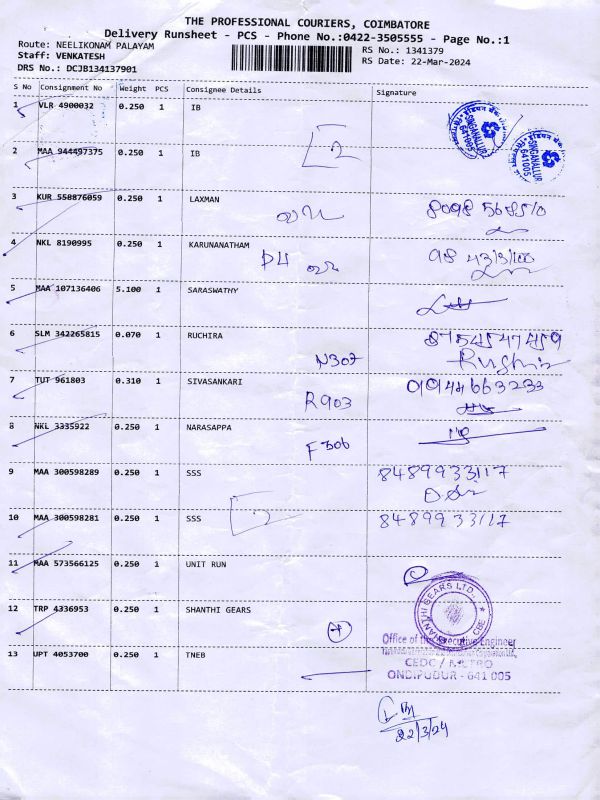 THE PROFESSIONAL COURIERS, COIMBATORE
Delivery Runsheet - PCS - Phone No.:0422-3505555 - Page No.:1
Route: NEELIKONAM PALAYAM
RS No.: 1341379
Staff: VENKATESH
RS Date: 22-Mar-2024
DRS No.: DCJB134137901
S No Consignment No Weight PCS Consignee Details Signature
1 VLR 4900032 0.250 1 IB
SINGANALLUR
641005
2 MAA 944497375 0.250 1 IB
SINGANALLUR
641005
3 KUR 550876059 0.250 1 LAXMAN
4 NKL 8190995 0.250 1 KARUNANATHAM
5 MAA 107136406 5.100 1 SARASWATHY
6 SLM 342265815 0.070 1 RUCHIRA N302
7 TUT 961803 0.310 1 SIVASANKARI R903
8 NKL 3335922 0.250 1 NARASAPPA F306
9 MAA 300598289 0.250 1 SSS 8489933117
10 MAA 300598281 0.250 1 SSS 8489933117
11 MAA 573566125 0.250 1 UNIT RUN
12 TRP 4336953 0.250 1 SHANTHI GEARS
SHANTHI GEARS LTD., CBE
Office of the Executive Engineer
CEDC / METRO
ONDIPUDUR - 641 005
13 UPT 4053700 0.250 1 TNEB
22/3/24